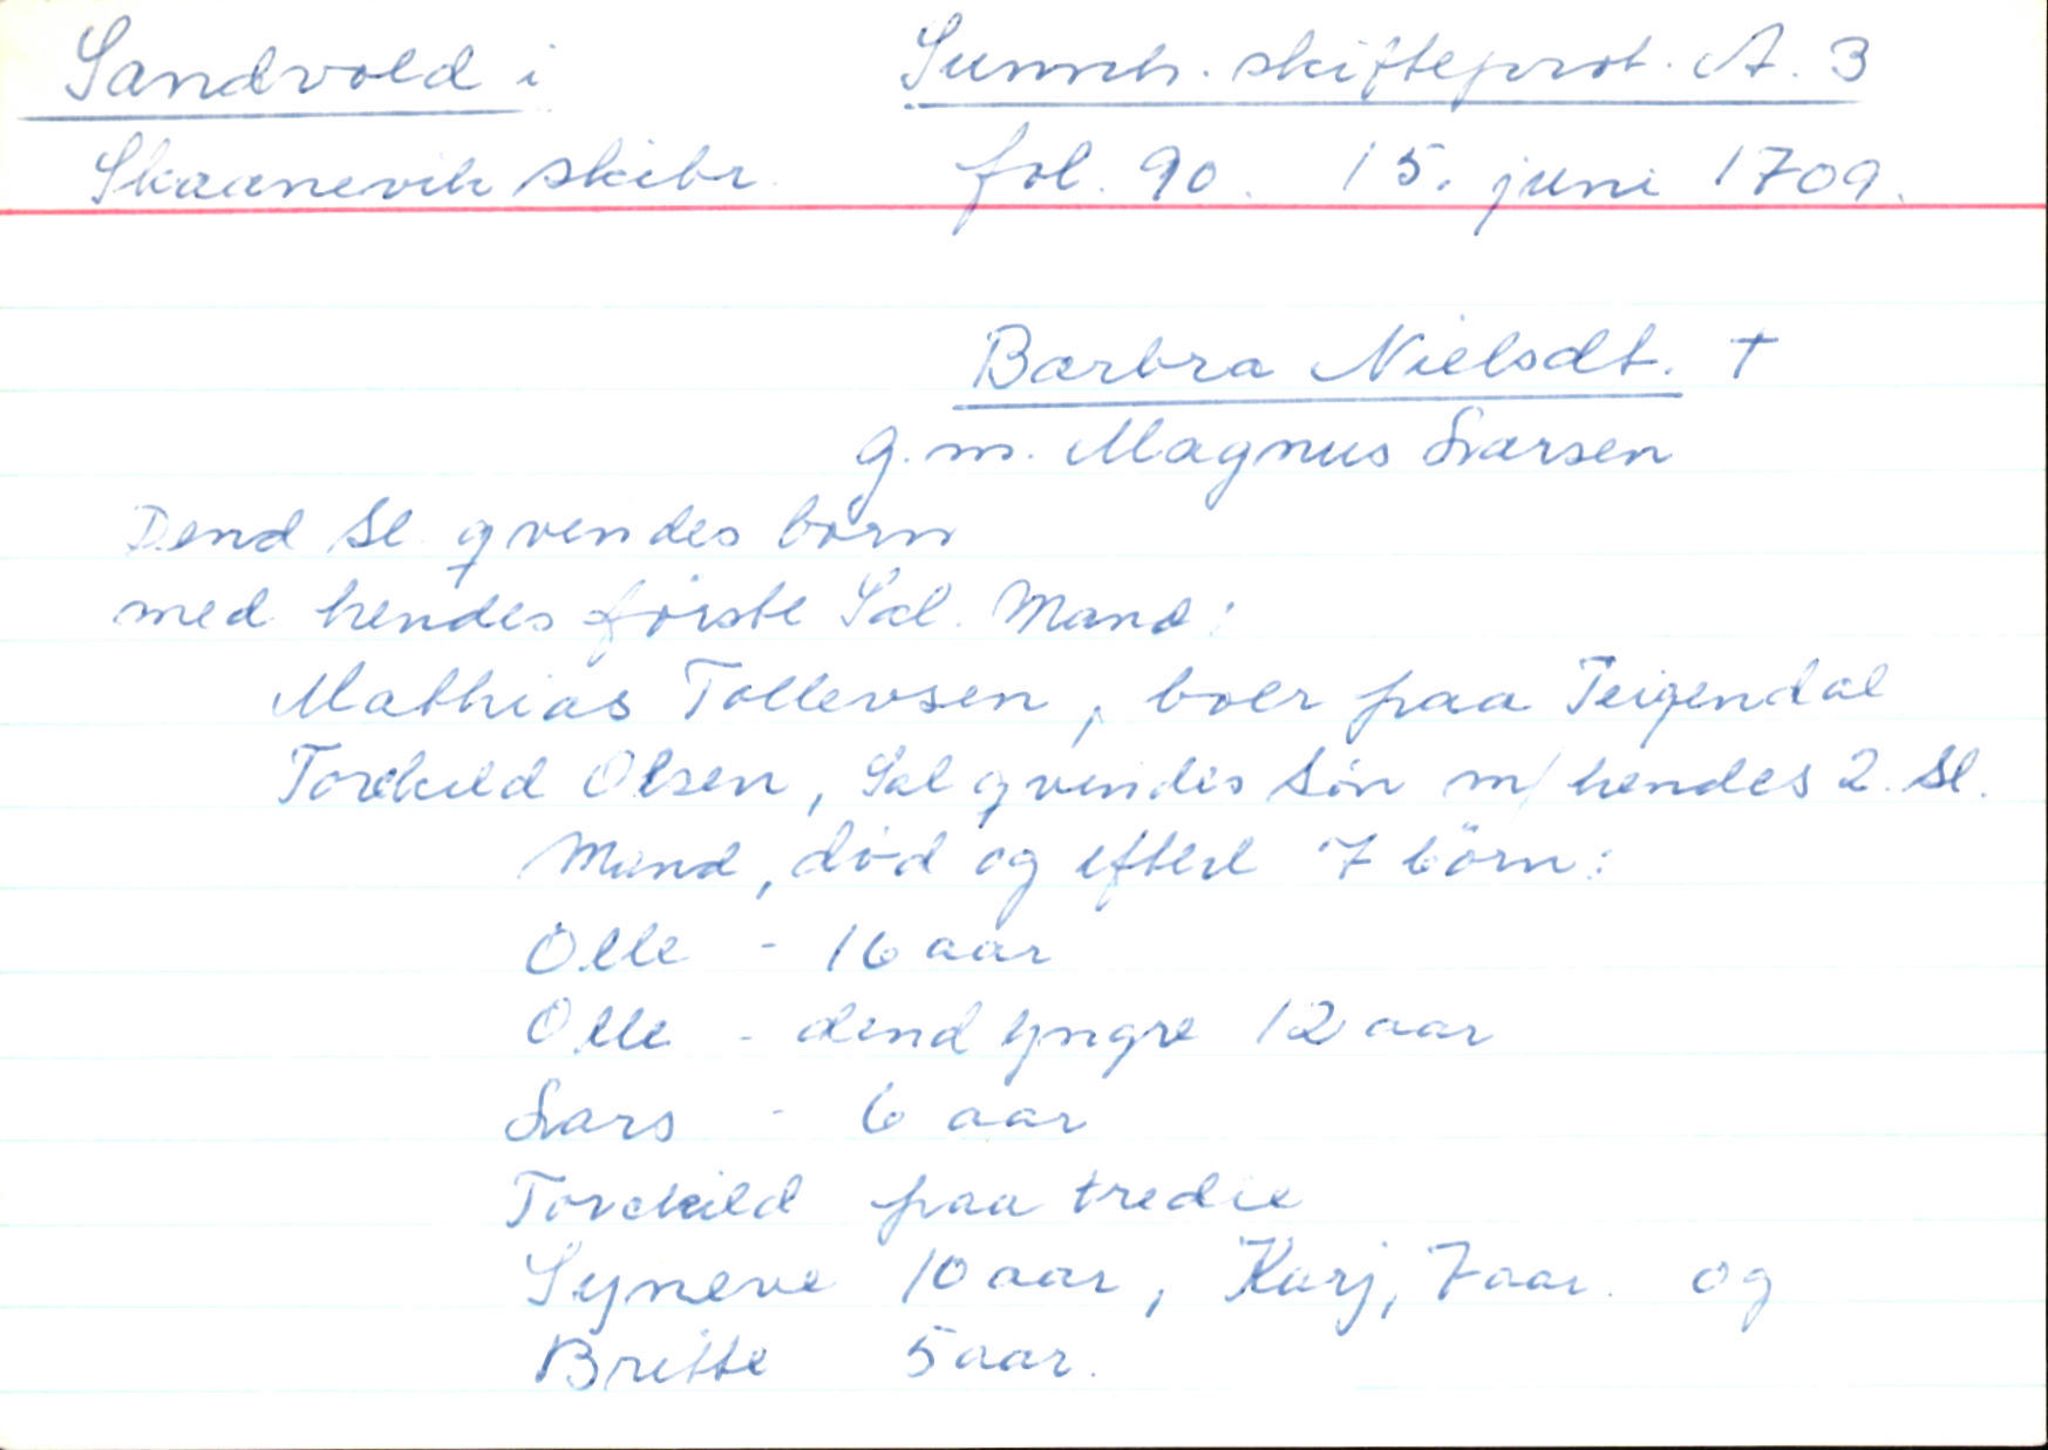 Sandvold i
Sunnh. skifteprot. A. 3
Skaanevik skibr.
fol. 90. 15. juni 1709.
Barbra Nielsdt. †
g. m. Magnus Larsen
Dend Sl. qvendes börn
med hendes förste Sal. Mand:
Mathias Tollevsen, boer paa Teigendal
Torckild Olsen, Sal qvindes Sön m/ hendes 2. Sl.
Mand, död og efterl 7 börn:
Olle - 16 aar
Olle - dend yngre 12 aar
Lars - 6 aar
Torckild paa tredie
Syneve 10 aar, Karj, 7 aar. og
Britte 5 aar.